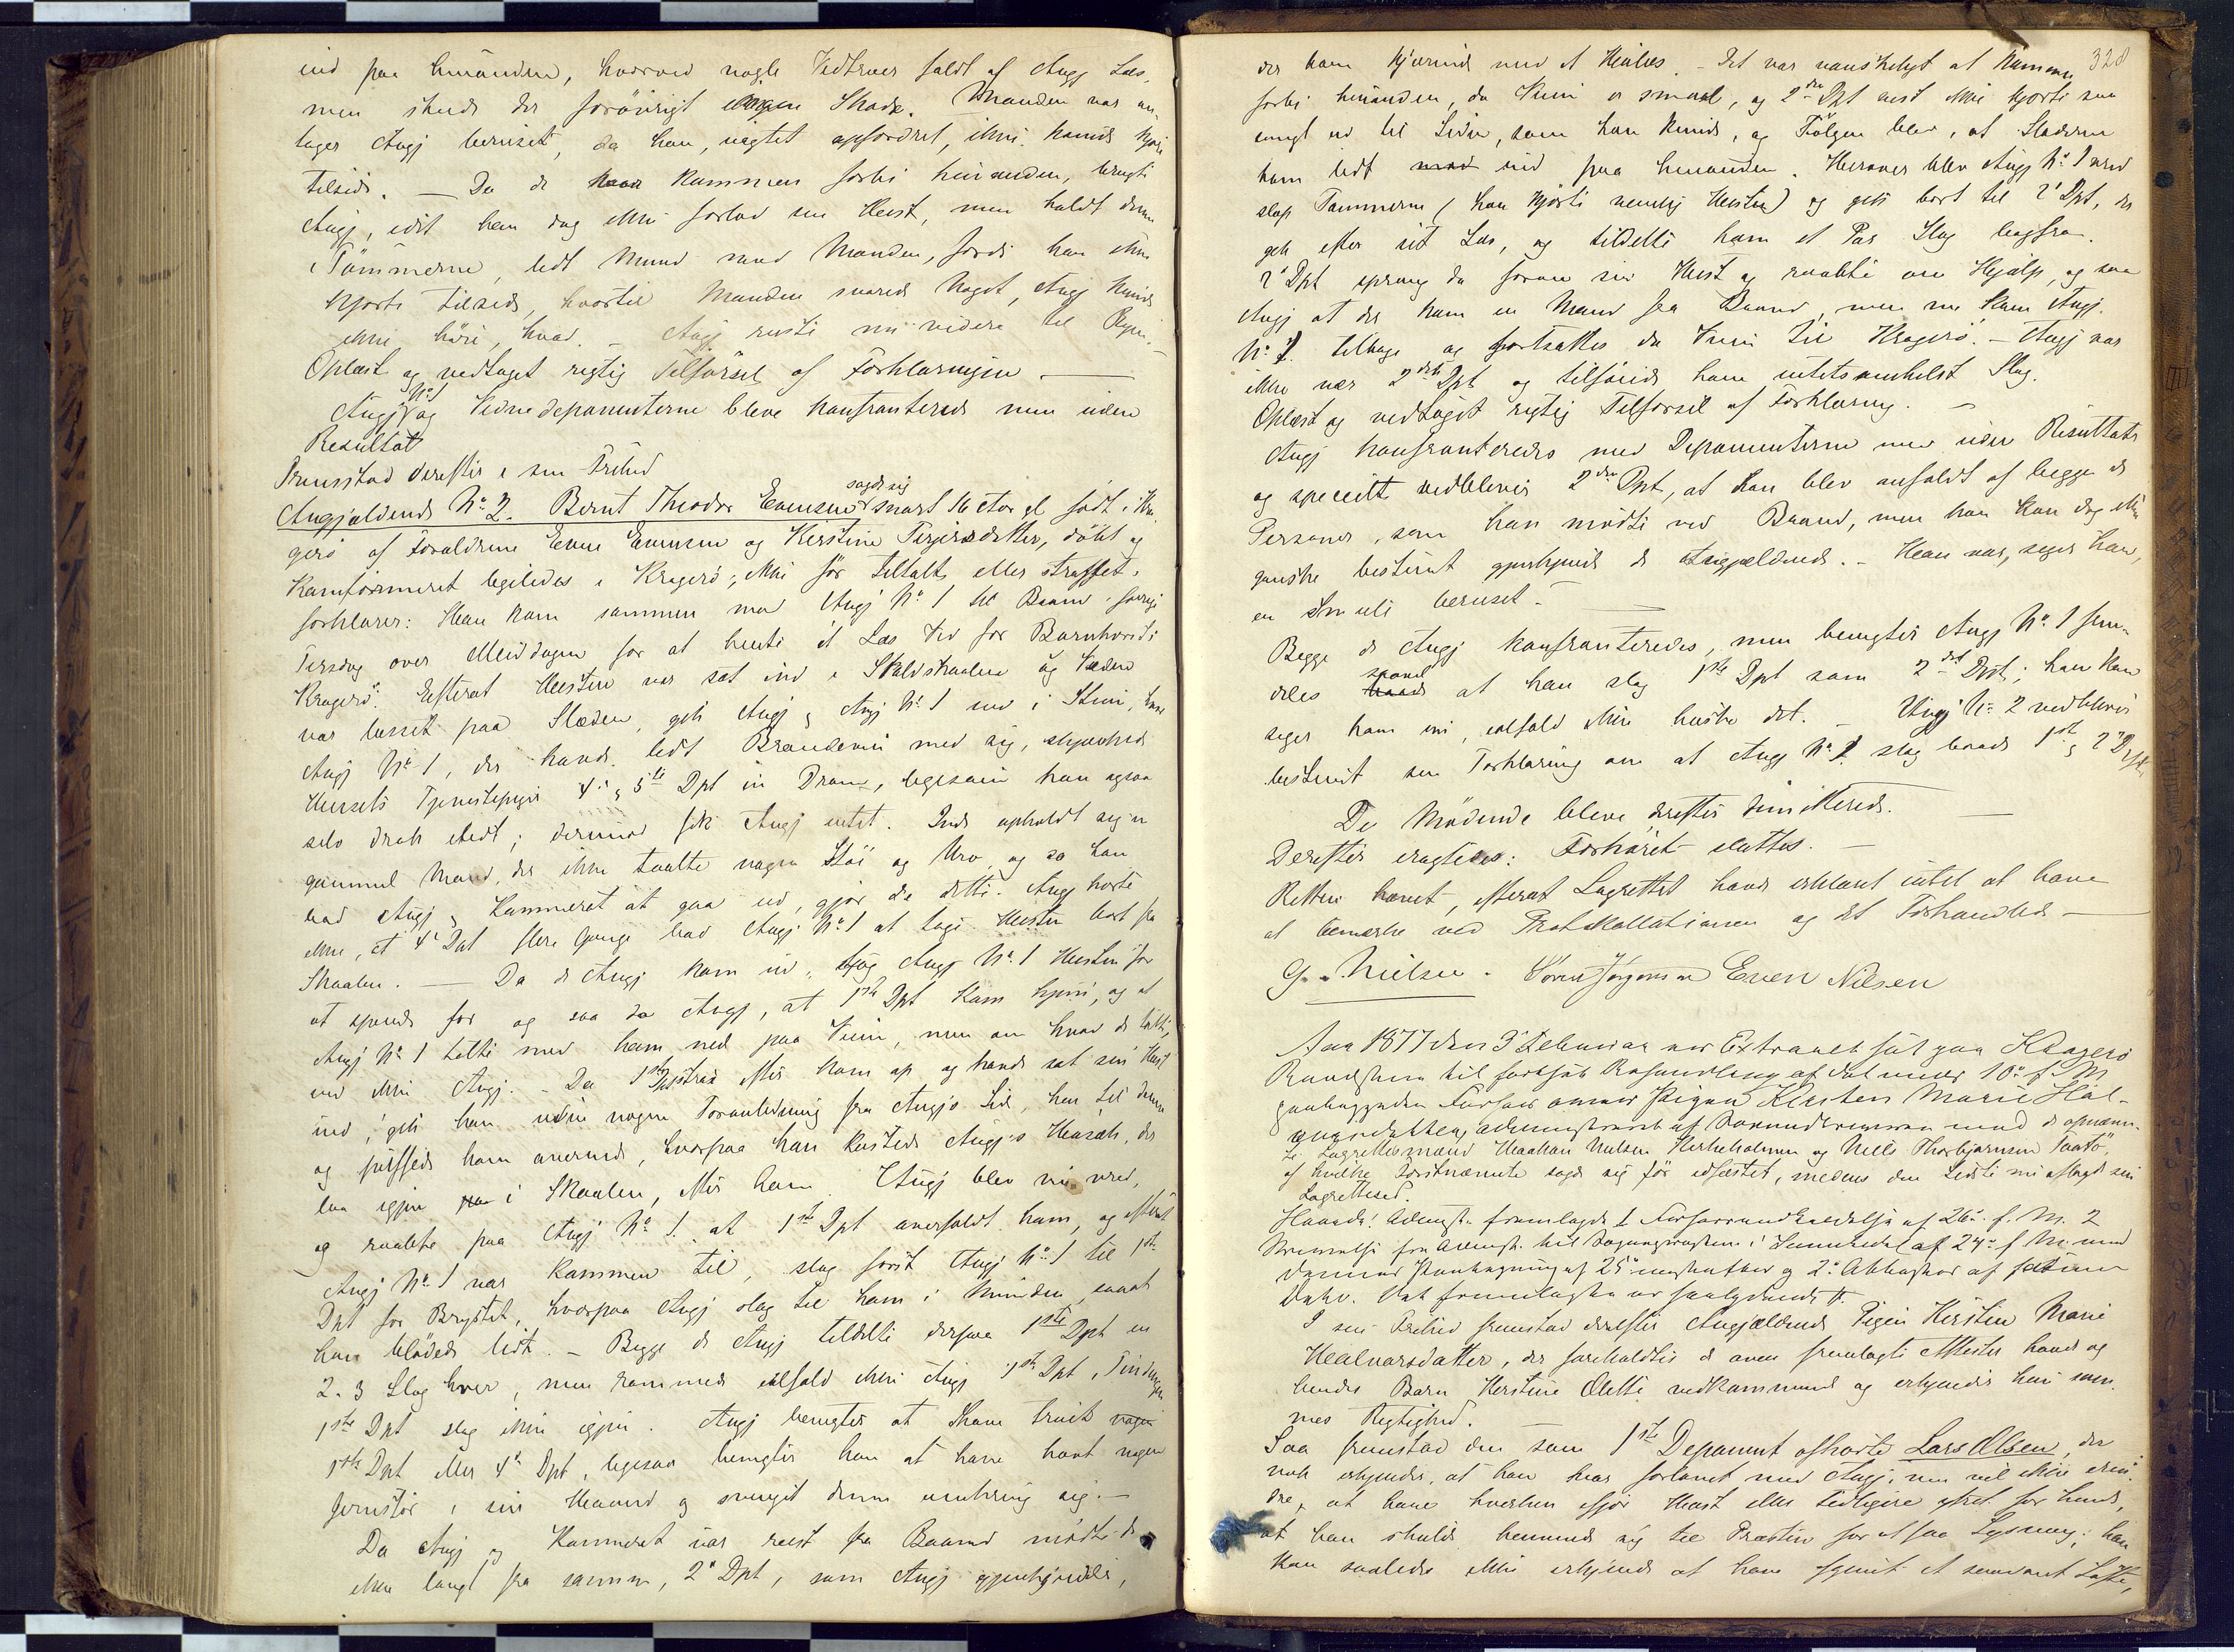 ind paa hinanden, hvorved nogle Vedtræer faldt af Angj Læs,
men skede der forövrigt ingen Skade. Manden var an-
tager Angj beruset, da han, uagtet opfordret, ikke kunde kjöre
tilside. — Da de vare kommen forbi hinanden, brugte
Angj, idet han dog ikke forlod sin Hest, men holdt denne
i Tömmerne, lidt Mund mod Manden, fordi han ikke
kjörte tilside, hvortil Manden svarede Noget, Angj kunde
ikke höre, hvad. — Angj reiste nu videre til Byen. —
Oplæst og vedtaget rigtig Tilförsel af Forklaringen —
Angj N:o 1 og Vidnedeponenterne bleve konfronterede men uden
Resultat
Fremstod derefter i sin Frihed
Angjældende N:o 2. Bernt Theodor Evensen sagde sig snart 16 Aar gl födt i Kra-
gerö af Forældrene Even Evensen og Kirstine Terjersdatter, döbt og
konfirmeret ligeledes i Kragerö; ikke för tiltalt eller straffet.
forklarer: Han kom sammen med Angj N:o 1 til Baand forrige
Tirsdag over Middagen for at hente et Læs Ved for Barnholdt i
Kragerö. Efterat Hesten var sat ind i Skaalen og Veden
var læsset paa Slæden, gik Angj og Angj N:o 1 ind i Stuen, hvor
Angj N:o 1, der havde lidt Brændevin med sig, skjænkede
Husets Tjenestepiger 4:e og 5:te Dpt en Dram, ligesom han ogsaa
selv drak lidt; derimod fik Angj intet. Inde opholdt sig en
gammel Mand, der ikke taalte nogen Stöi og Uro, og da han
bad Angj og Kammerat at gaa ud, gjor de dette. Angj hörte
ikke, at 4:e Dpt flere Gange bad Angj N:o 1 at tage Hesten bort fra
Skaalen. — Da de Angj kom ud, tog Angj N:o 1 Hesten for
at spænde for og saa da Angj, at 1ste Dpt kom hjem, og at
Angj N:o 1 talte med ham ned paa Veien, men om hvad de talte,
ved ikke Angj. — Da 1ste Dpt strax efter kom op og havde sat sin Hest
ind, gik han uden nogen Foranledning fra Angjs Side, hen til denne
og puffede ham overende, hvorpaa han kastede Angj's Huesæk, der
laa igjen i Skaalen, efter ham. Angj blev nu vred,
og raabte paa Angj N:o 1. at 1ste Dpt overfaldt ham, og efterat
Angj N:o 1 var kommen til, slog först Angj N:o 1 til 1ste
Dpt for Brystet, hvorpaa Angj slog til ham i Munden, saaat
han blödede lidt. — Begge de Angj tildelte derpaa 1ste Dpt en
2-3 Slag hver, men rammede ialfald ikke Angj 1ste Dpt i Tindingen
1ste Dpt slog ikke igjen. Angj benegter at have truet
1ste Dpt eller 4:e Dpt, ligesaa benegter han at have havt nogen
Jernstör i sin Haand og svunget denne omkring sig. —
Da Angj og Kammerat var reist fra Baand mödte de
ikke langt fra samme, 2:e Dpt, som Angj gjenkjender,
328
der kom kjörende med et Hölæs. — Det var vanskeligt at komme
forbi hinanden, da Veien er smal, og 2den Dpt vist ikke kjörte saa
langt ud til Siden, som han kunde, og Fölgen blev, at Slæderne
kom lidt ind paa hinanden. Herover blev Angj N:o 1 vred
slap Tömmerne (han kjörte nemlig Hesten) og gik bort til 2' Dpt, der
gik efter sit Læs, og tildelte ham et Par Slag bagfra.
2' Dpt sprang da foran sin Hest og raabte om Hjælp, og saa
Angj at der kom en Mand fra Baand, men nu kom Angj.
N:o 1. tilbage og fortsattes da Veien til Kragerö. — Angj var
ikke nær 2den Dpt og tilföiede ham intetsomhelst Slag.
Oplæst og vedtaget rigtig Tilförsel af Forklaring. —
Angj konfronteredes med Deponenterne men uden Resultat
og specielt vedblever 2den Dpt, at han blev anfaldt af begge de
Personer, som han mödte ved Baand, men han kan dog ikke
ganske bestemt gjenkjende de Angjældende. — Han var, siger han,
en Smule beruset. —
Begge de Angj konfronteredes, men benegter Angj N:o 1 frem-
deles saavel at han slog 1ste Dpt som 2det Dpt; han kan
siger han nu, ialfald ikke huske det. — Angj N:o 2 vedblever
bestemt sin Forklaring om at Angj N:o 1 slog baade 1ste og 2' Dpt
De Mödende bleve derefter dimitterede.
Derefter eragtedes: Forhöret sluttes. —
Retten hævet, efterat Lagrettet havde erklæret intet at have
at bemærke ved Protokollationen og det Forhandlede —
G. Nielsen. Sören Jörgensen Even Nilsen
Aar 1877 den 3' Februar var Extraret sat paa Kragerö
Raadstue til fortsat Behandling af det under 10:e f. M.
paabegyndte Forhör over Pigen Kirsten Marie Hal-
vorsdatter, administreret af med de opnævn-
te Lagrettesmænd Haakon Nielsen Kirkeholmen og Niels Thorbjörnsen Taatö,
af hvilke Förstnævnte sagde sig för edfæstet, medens den Sidste nu aflagde sin
Lagretteed.
Hvorda! Adminst. fremlagde 1 Forhörsudskrift af 26:e f. M. 2
Skrivelse fra Adminst. til Sogneprästen i Sannikedal af 24:e f. M. med
dennes Paategning af 25:e næstefter og 2:e Attester af samme
Dato. Det fremlagte er saalydende #.
I sin Frihed fremstod derefter Angjældende Pigen Kirsten Marie
Halvorsdatter, der foreholdtes de oven fremlagte Attester hende og
hendes Barn Kirstine Olette vedkommende og erkjender hun sam-
mes Rigtighed. —
Saa fremstod den som 1ste Deponent afhörte Lars Olsen, der
nok erkjender, at han har forlovet med Angj, men vil ikke erin-
dre, at have hverken ifjor Höst eller tidligere ytret for hende,
at han skulde henvende sig til Præsten for at faa Lysning; han
kan saaledes ikke erkjende at have givet et saadant Löfte,